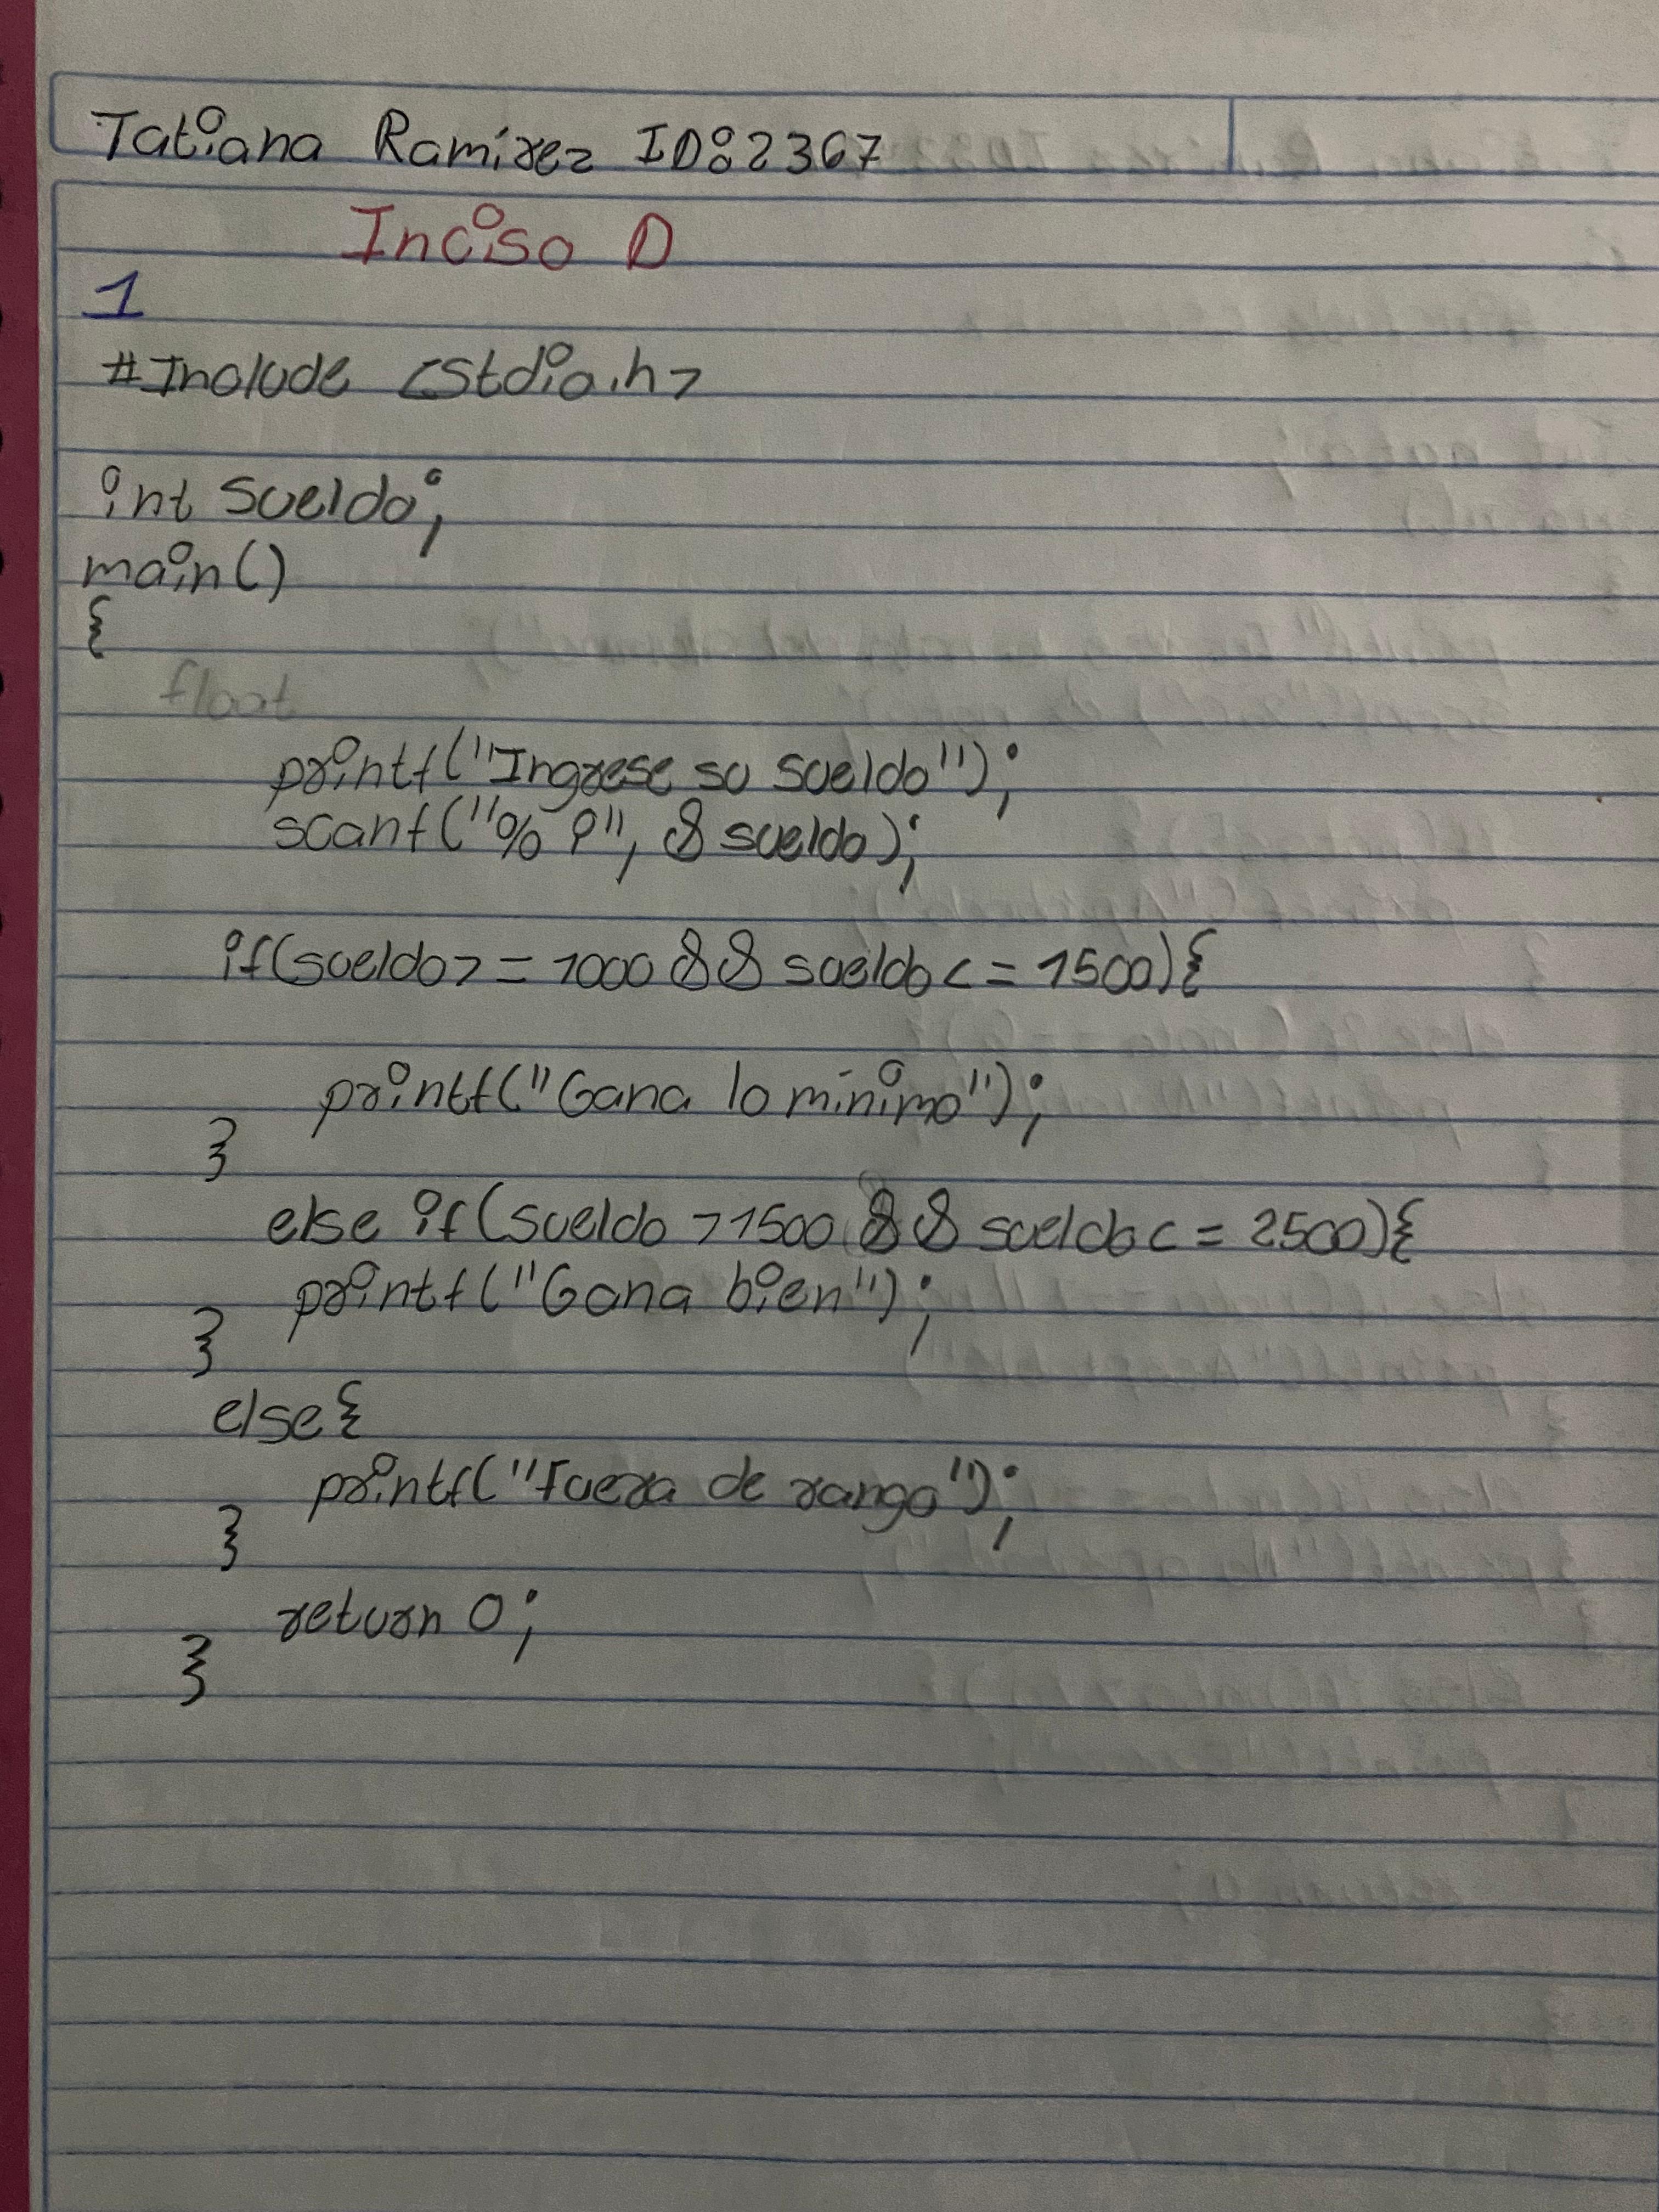 Tatiana Ramírez ID:2367
Inciso D
1
#Include <stdio.h>
int sueldo;
main()
{
float
printf("Ingrese su sueldo");
scanf("% i", & sueldo);
if(sueldo>=1000 && sueldo<=1500){
printf("Gana lo mínimo");
}
else if(sueldo >1500 && sueldo<=2500){
printf("Gana bien");
}
else{
printf("Fuera de rango");
}
return 0;
}